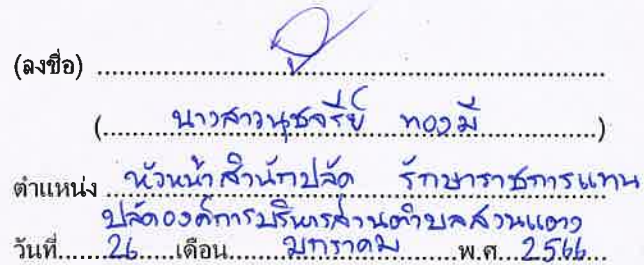 (ลงชื่อ) ........................................................................
(............นางสาวนุชจรีย์ ทองมี............)
ตำแหน่ง ..หัวหน้าสำนักปลัด รักษาราชการแทน
ปลัดองค์การบริหารส่วนตำบลสวนแตง
วันที่......26......เดือน.......มกราคม.......พ.ศ...2566...